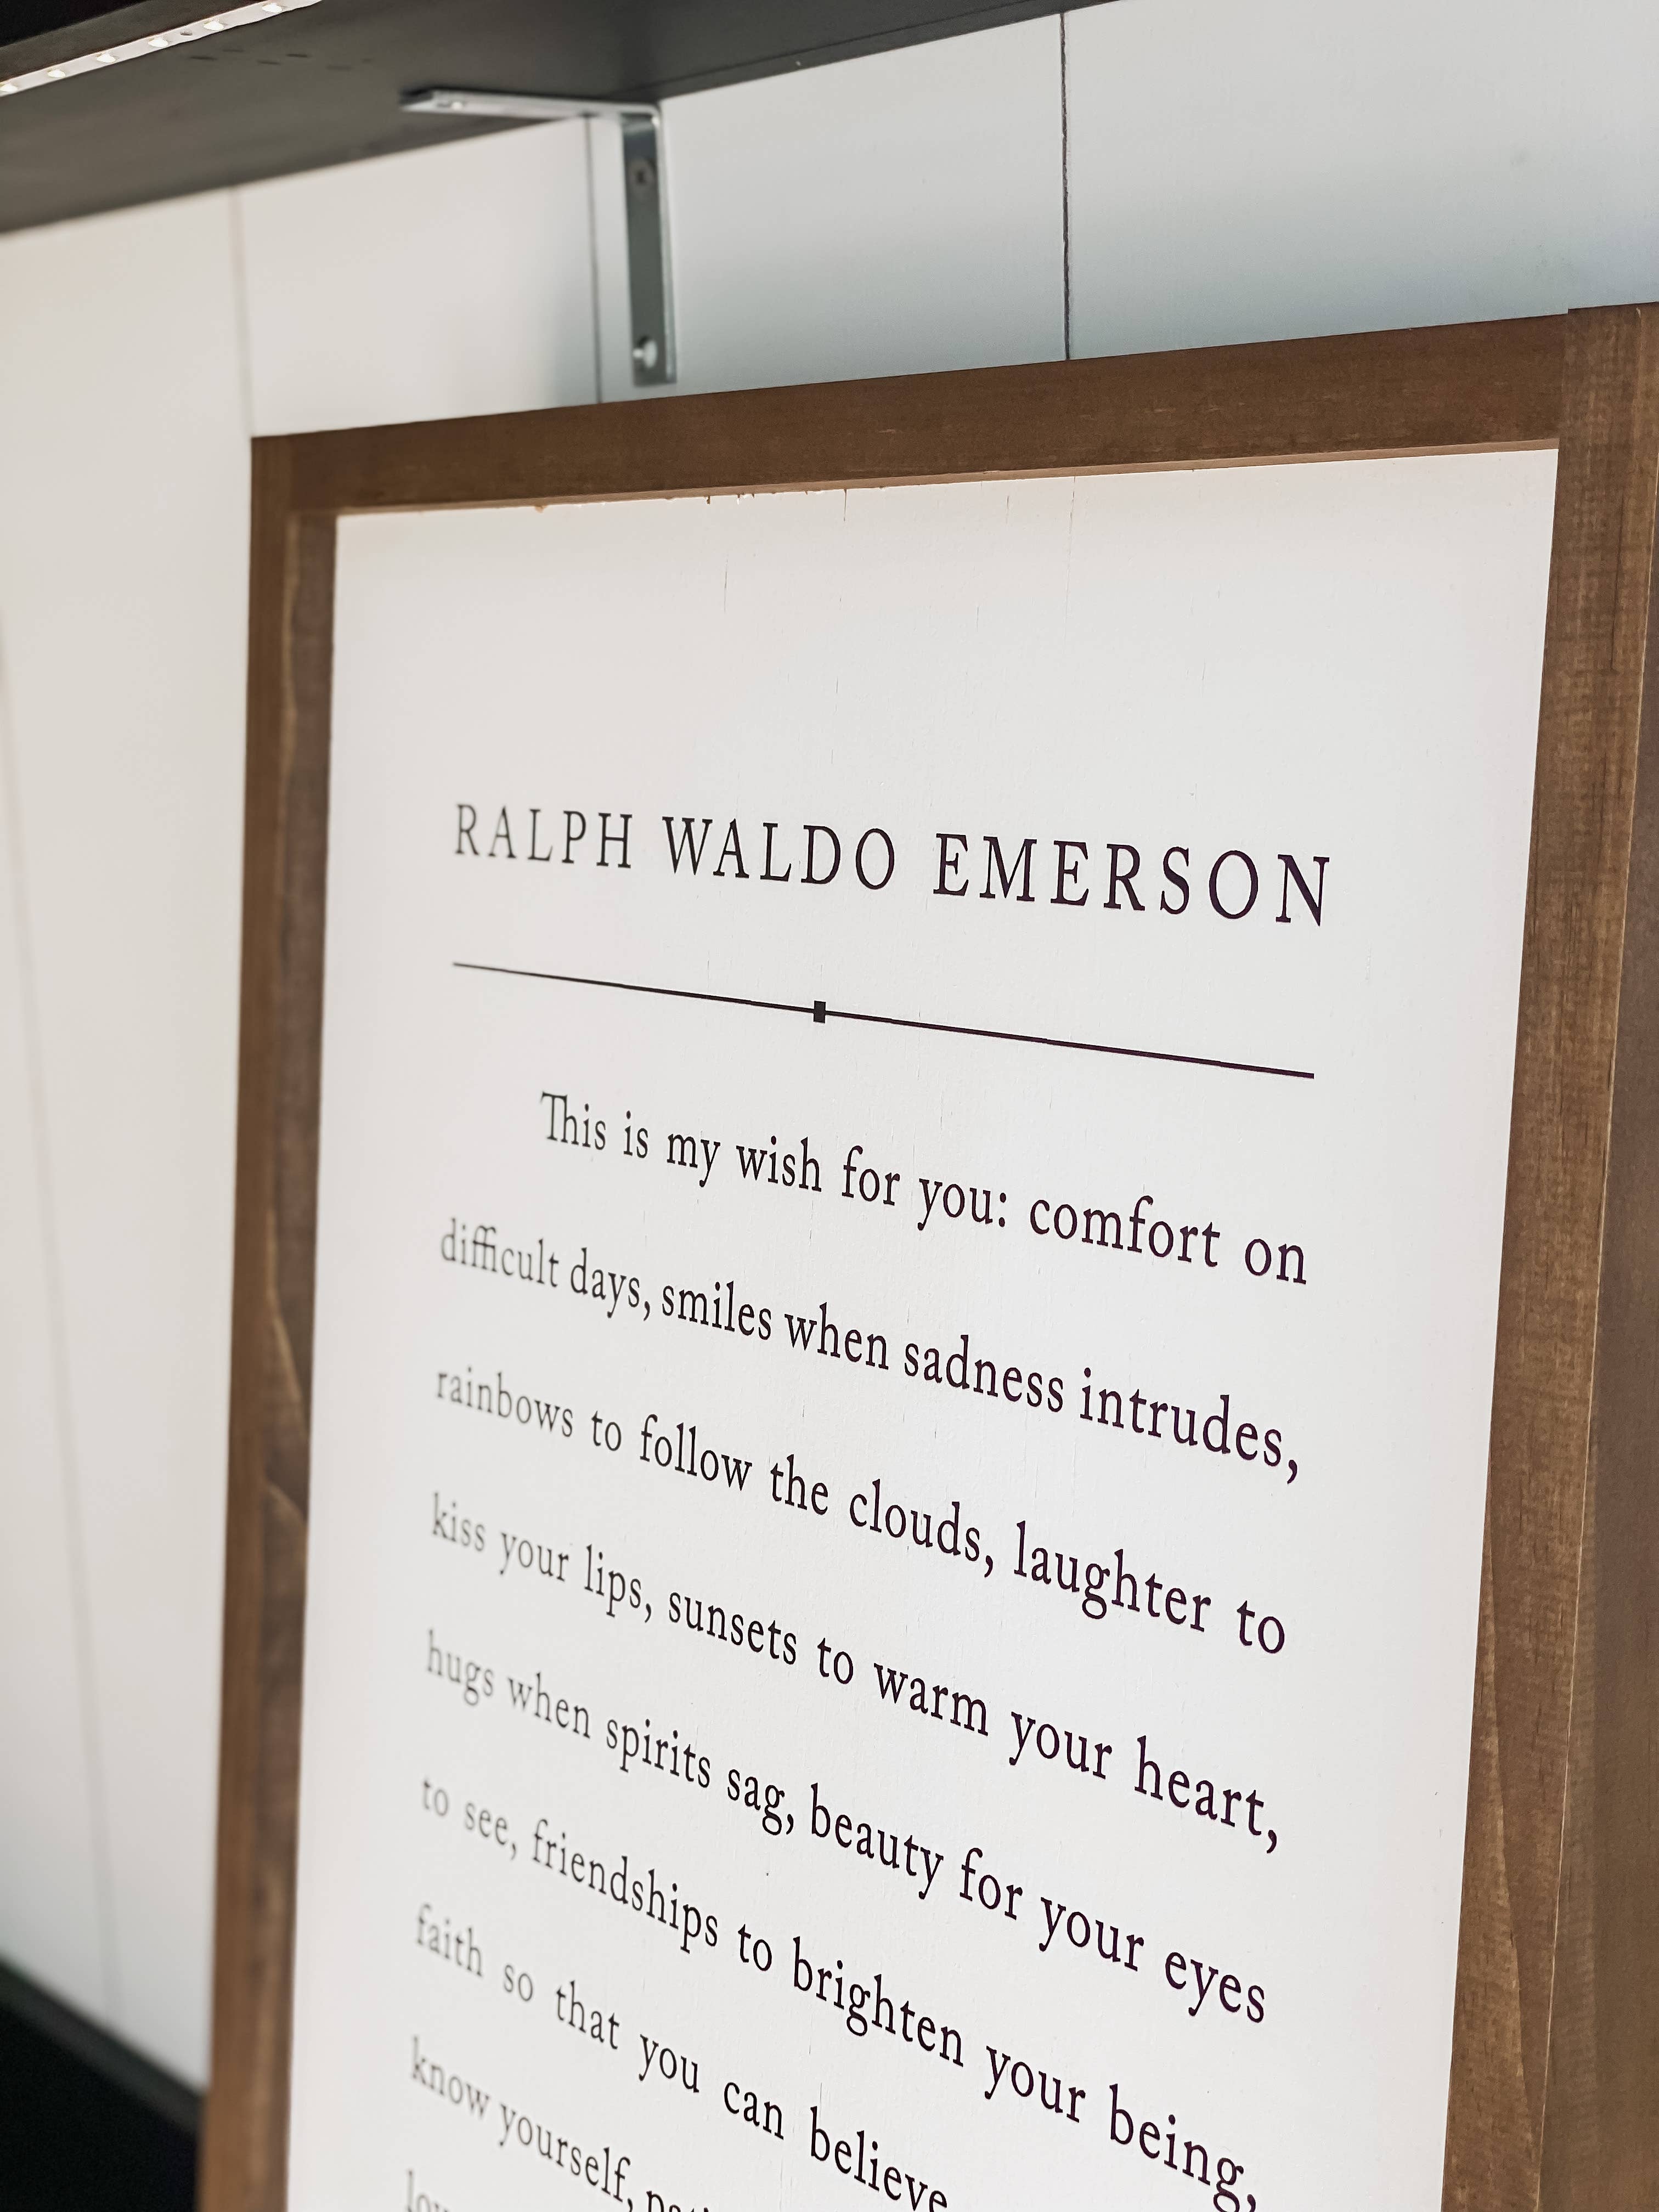 RALPH WALDO EMERSON
This is my wish for you: comfort on
difficult days, smiles when sadness intrudes,
rainbows to follow the clouds, laughter to
kiss your lips, sunsets to warm your heart,
hugs when spirits sag, beauty for your eyes
to see, friendships to brighten your being,
faith so that you can believe
know yourself,